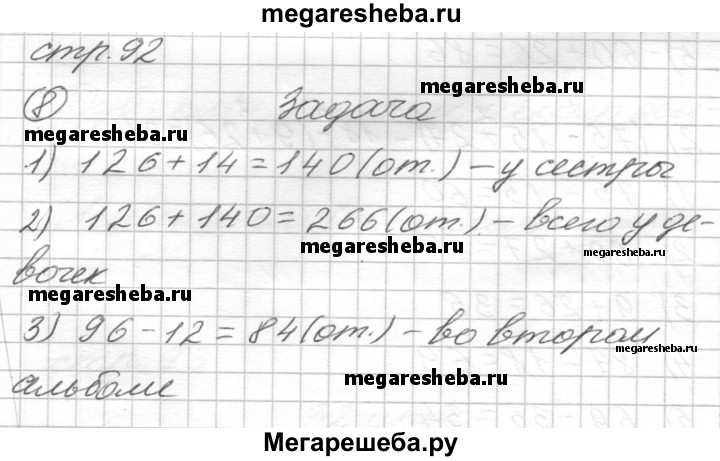 megaresheba.ru
стр. 92
megaresheba.ru
8 Задача
megaresheba.ru
1) 126 + 14 = 140 (от.) – у сестры
2) 126 + 140 = 266 (от.) – всего у де-
megaresheba.ru
megaresheba.ru
вочек
megaresheba.ru
3) 96 – 12 = 84 (от.) – во втором
megaresheba.ru
альбоме
megaresheba.ru
Мегарешеба.ру